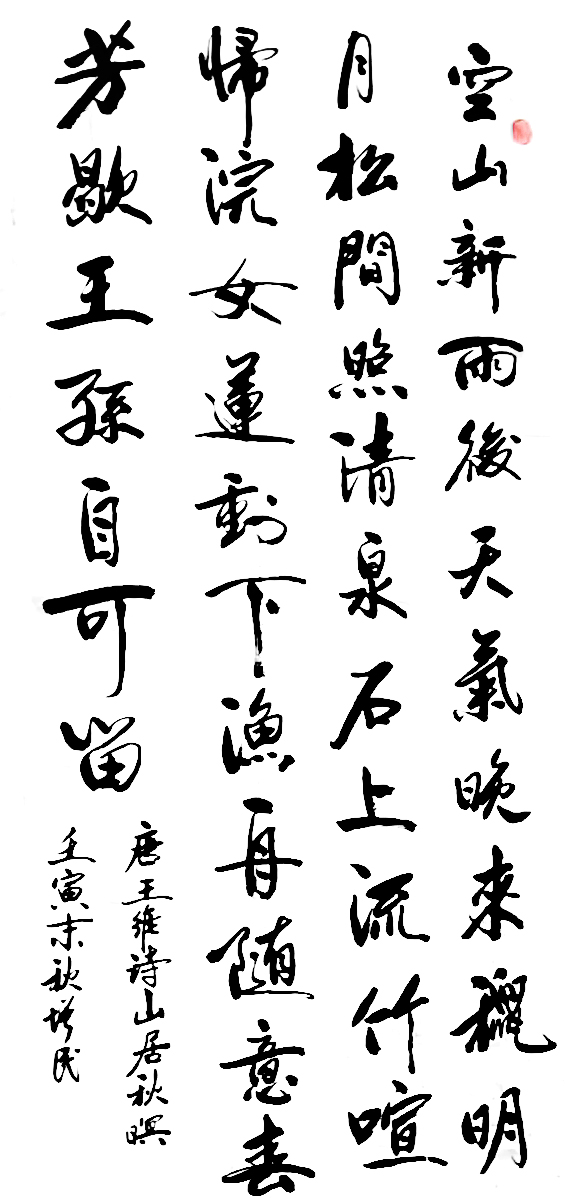 空山新雨後天氣晚來龝明
月松間照清泉石上流竹喧
帰浣女蓮動下漁舟随意春
芳歇王孫自可留
唐王維詩山居秋暝
壬寅末秋增民